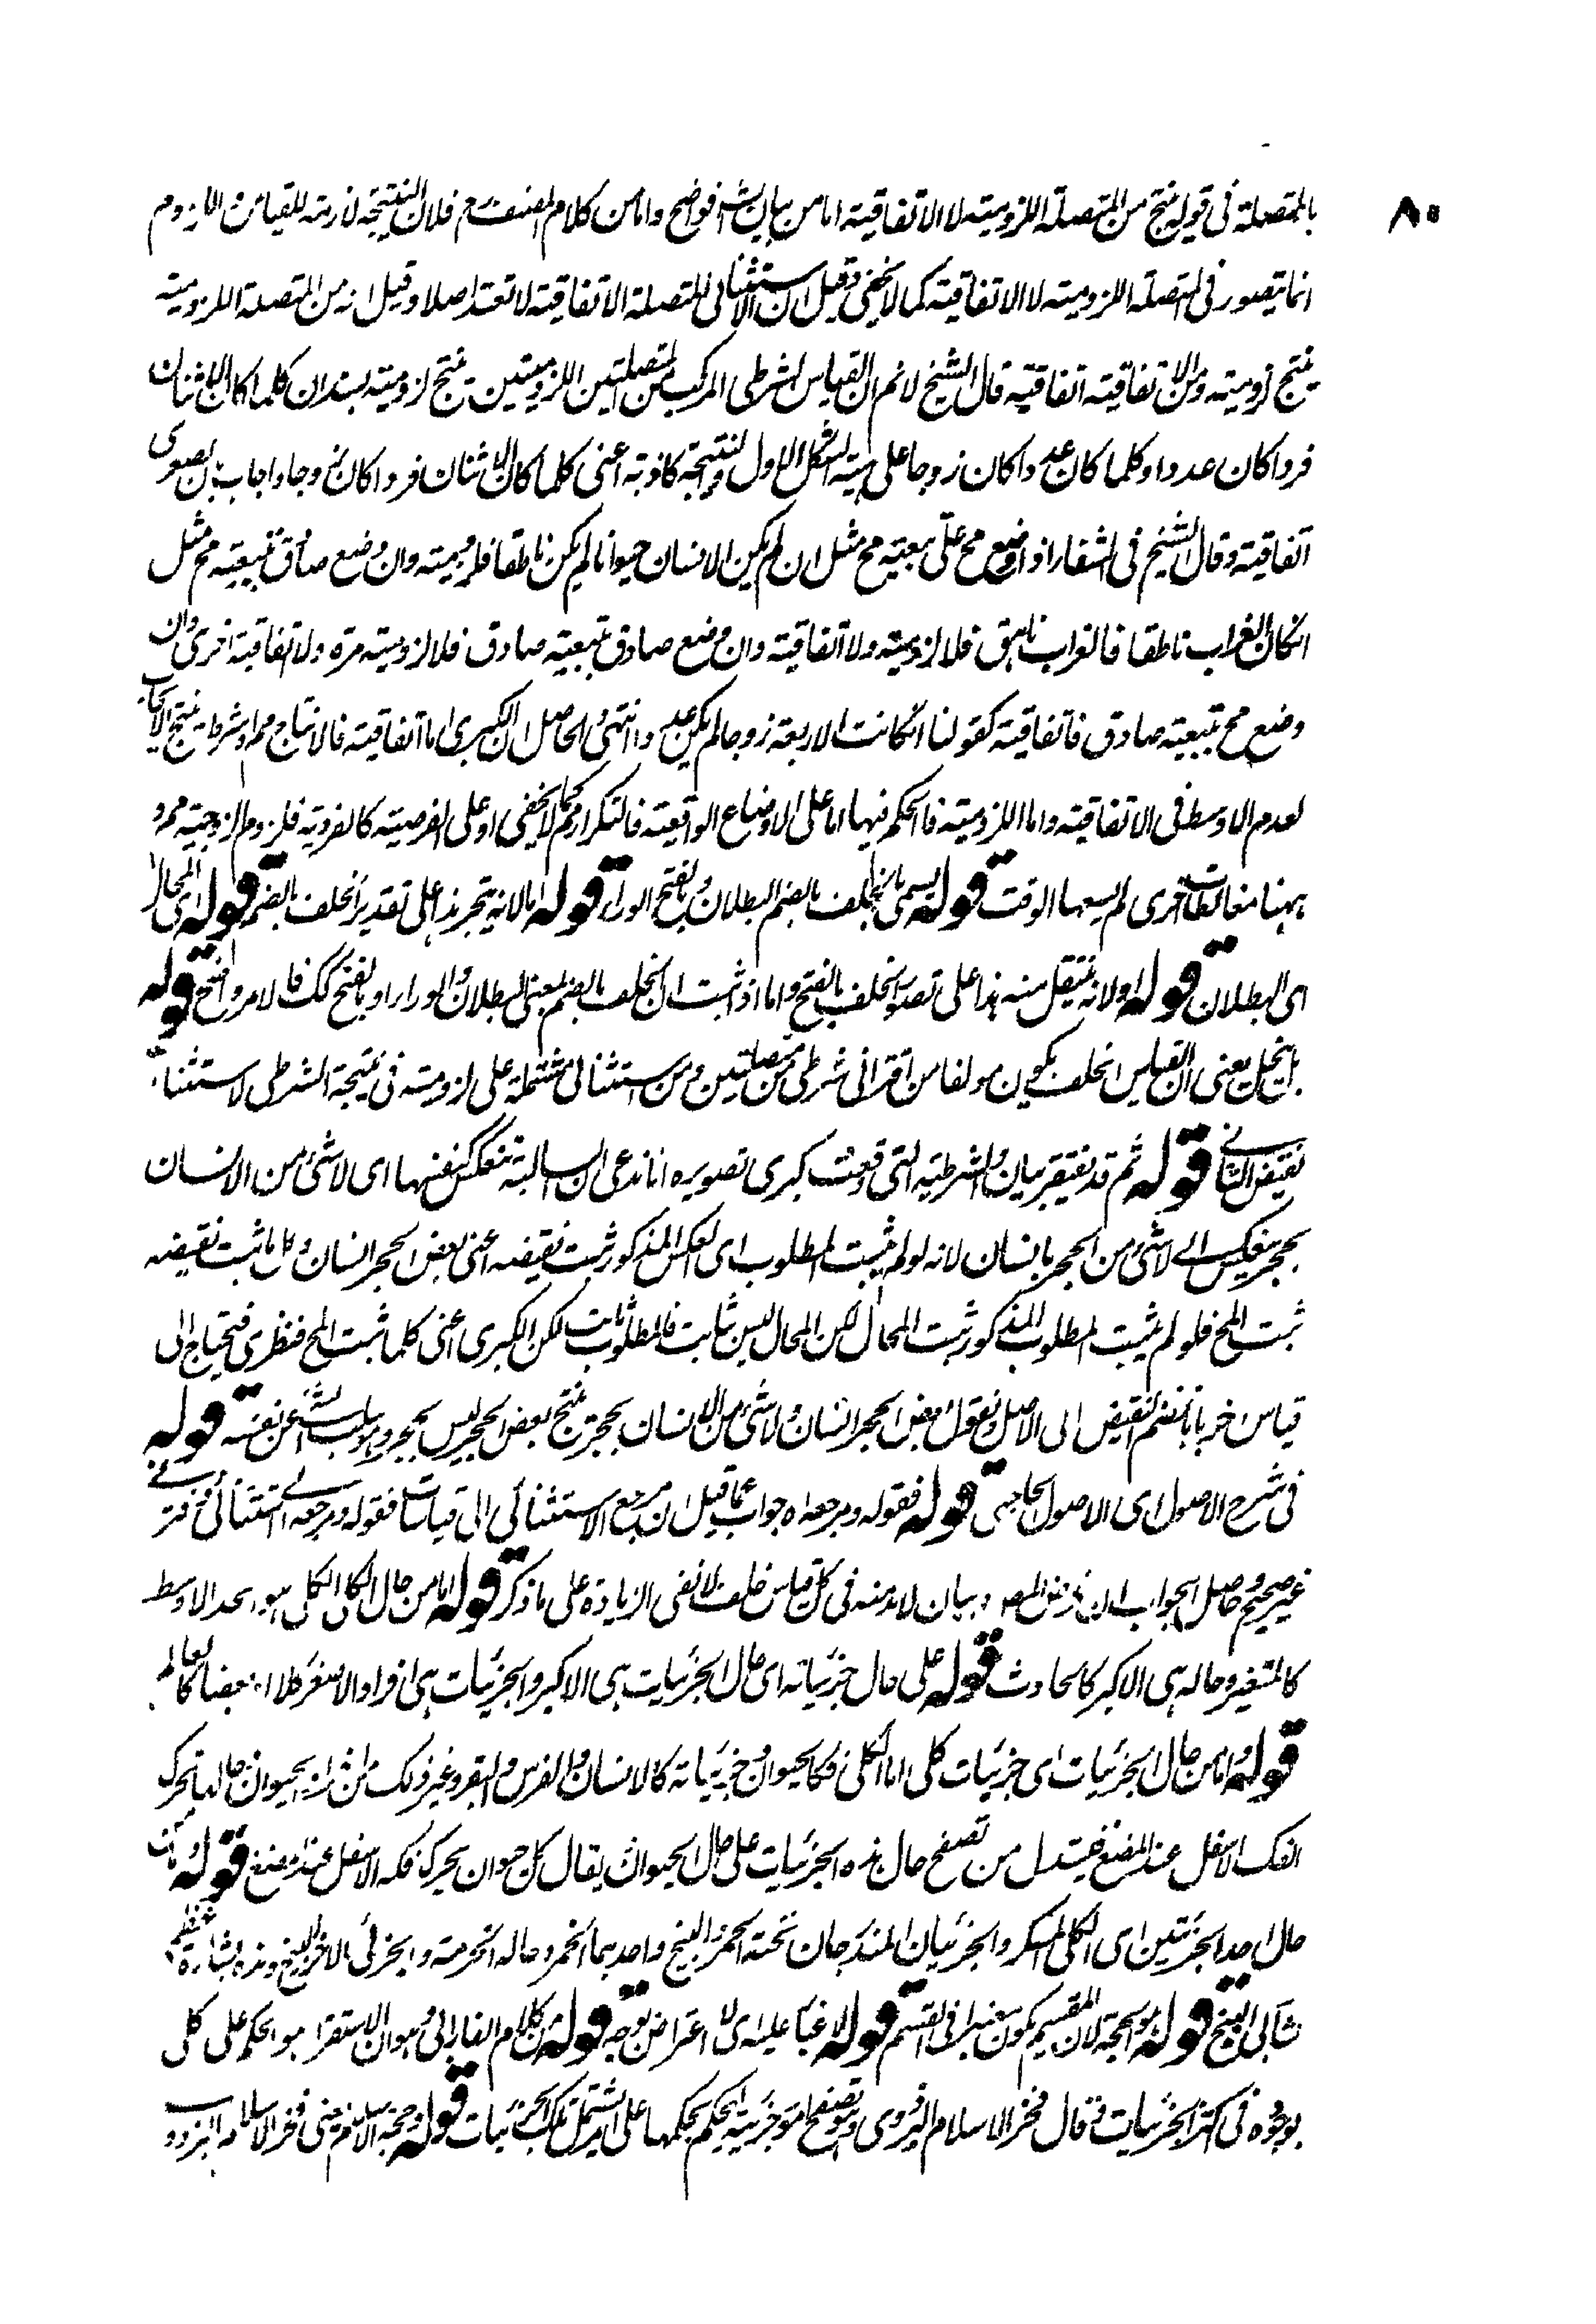 ٨٥
بالمتصلة فى قوله ينتج من المتصلة اللزومية لا الاتفاقية اما من بيان الش فواضح واما من كلام المصنف رح فلان النتيجة لازمة للقياس واللزوم
انما يتصور فى المتصلة اللزومية لا الاتفاقية كما لا يخفى وقيل ان الاستثنائى للمتصلة الاتفاقية لا تعتد اصلا وقيل انه من المتصلة اللزومية
ينتج لزومية ومن الاتفاقية اتفاقية قال الشيخ لا نم ان القياس الشرطى المركب من المتصلتين اللزوميتين ينتج لزومية لصدق ان كلما كان الاثنان
فردا كان عددا وكلما كان عددا كان زوجا على هيئة الشكل الاول والنتيجة كاذبة اعنى كلما كان الاثنان فردا كان زوجا واجاب بان الصغرى
اتفاقية وقال الشيخ فى الشفا اذا وضع مح على تبعية مح مثل ان لم يكن الانسان حيوانا لم يكن ناطقا فلزومية وان وضع صادق بتبعية مح مثل
انكان الغراب ناطقا فالغراب ناهق فلا لزومية ولا اتفاقية وان وضع صادق بتبعية صادق فلا لزومية مرة ولا اتفاقية اخرى وان
وضع مح بتبعية صادق فاتفاقية كقولنا انكانت الاربعة زوجا لم يكن عددا انتهى والحاصل ان الكبرى اما اتفاقية فالانتاج مم وشرطية ينتج الايجاب
لعدم الاوسط فى الاتفاقية واما اللزومية فالحكم فيها اما على الاوضاع الواقعية فالتكرار مم كما لا يخفى او على الفرضية كالفردية فلزوم الزوجية مم و
ههنا مغالطات اخرى لم يسعها الوقت قوله يسمى بالخلف بالضم البطلان وبالفتح الوراء قوله اما لانه ينجر هذا على تقدير الخلف بالضم قوله اى المحال
اى البطلان قوله او لانه ينتقل منه هذا على تصور الخلف بالفتح واما اذا ثبت ان الخلف بالضم بمعنى البطلان والوراء او بالفتح كك فالامر واضح قوله
بانحل يعنى ان القياس الخلف يكون مولفا من اقترانى شرطى من متصلتين ومن استثنائى مشتملة على لزومية فى نتيجة الشرطى لاستثناء
نقيض التالى قوله ثم قد يفتقر بيان والشرطية التى وقعت كبرى تصويره انا ندعى ان السالبة تنعكس كنفسها اى لا شئ من الانسان
بحجر ينعكس الى لا شئ من الحجر بانسان لانه لو لم يثبت المطلوب اى العكس المذكور ثبت نقيضه اعنى بعض الحجر انسان وكل ما ثبت نقيضه
ثبت المح فلو لم يثبت المطلوب المذكور ثبت المحال لكن المحال ليس بثابت فالمطلوب ثابت لكن الكبرى اعنى كلما ثبت المح فنظرى فيحتاج الى
قياس اخر بان نضم النقيض الى الاصل ونقول بعض الحجر انسان ولا شئ من الانسان بحجر ينتج بعض الحجر ليس بحجر وهو سلب الشئ عن نفسه قوله
فى شرح الاصول اى الاصول الحاجبى قوله فقوله ومرجعه اه جواب عما قيل ان مرجع الاستثنائى الى قياسات فقوله ومرجعه الى استثنائى واقترانى
غير صحيح وحاصل الجواب ان بيان لابد منه فى كل قياس خلف لا نفى الزيادة على ما ذكر قوله اما من حال الكلى الكلى هو الحد الاوسط
كالمتغير وحاله هى الاكبر كالحادث قوله على حال جزئياته اى حال الجزئيات هى الاكبر والجزئيات هى افراد الاصغر كلا او بعضا كالعالم
قوله واما من حال الجزئيات اى جزئيات كلى اما الكلى فكالحيوان وجزئياته كالانسان والفرس والبقر وغير ذلك من الحيوان حالها تحرك
الفك الاسفل عند المضغ فيستدل من تصفح حال هذه الجزئيات على حال الحيوان يقال كل حيوان يحرك فكه الاسفل عند المضغ قوله واما من
حال احد الجزئيتين اى الكلى المسكر والجزئيان المندرجان تحته الخمر والبنج واحدهما الخمر وحاله الحرمة والجزئى الاخر البنج وهذه
قوله هو الحجة لان المقسم يكون معتبرا فى القسم قوله لا غبار عليه اى لا اعتراض بوجه قوله من كلام الفارابى وهو ان الاستقراء هو الحكم على كلى
بوجوده فى اكثر الجزئيات قال فخر الاسلام البزدوى هو تصفح امور جزئية ليحكم بحكمها على امر يشتمل تلك الجزئيات قوله حجة الاسلام يعنى فخر الاسلام البزدوى